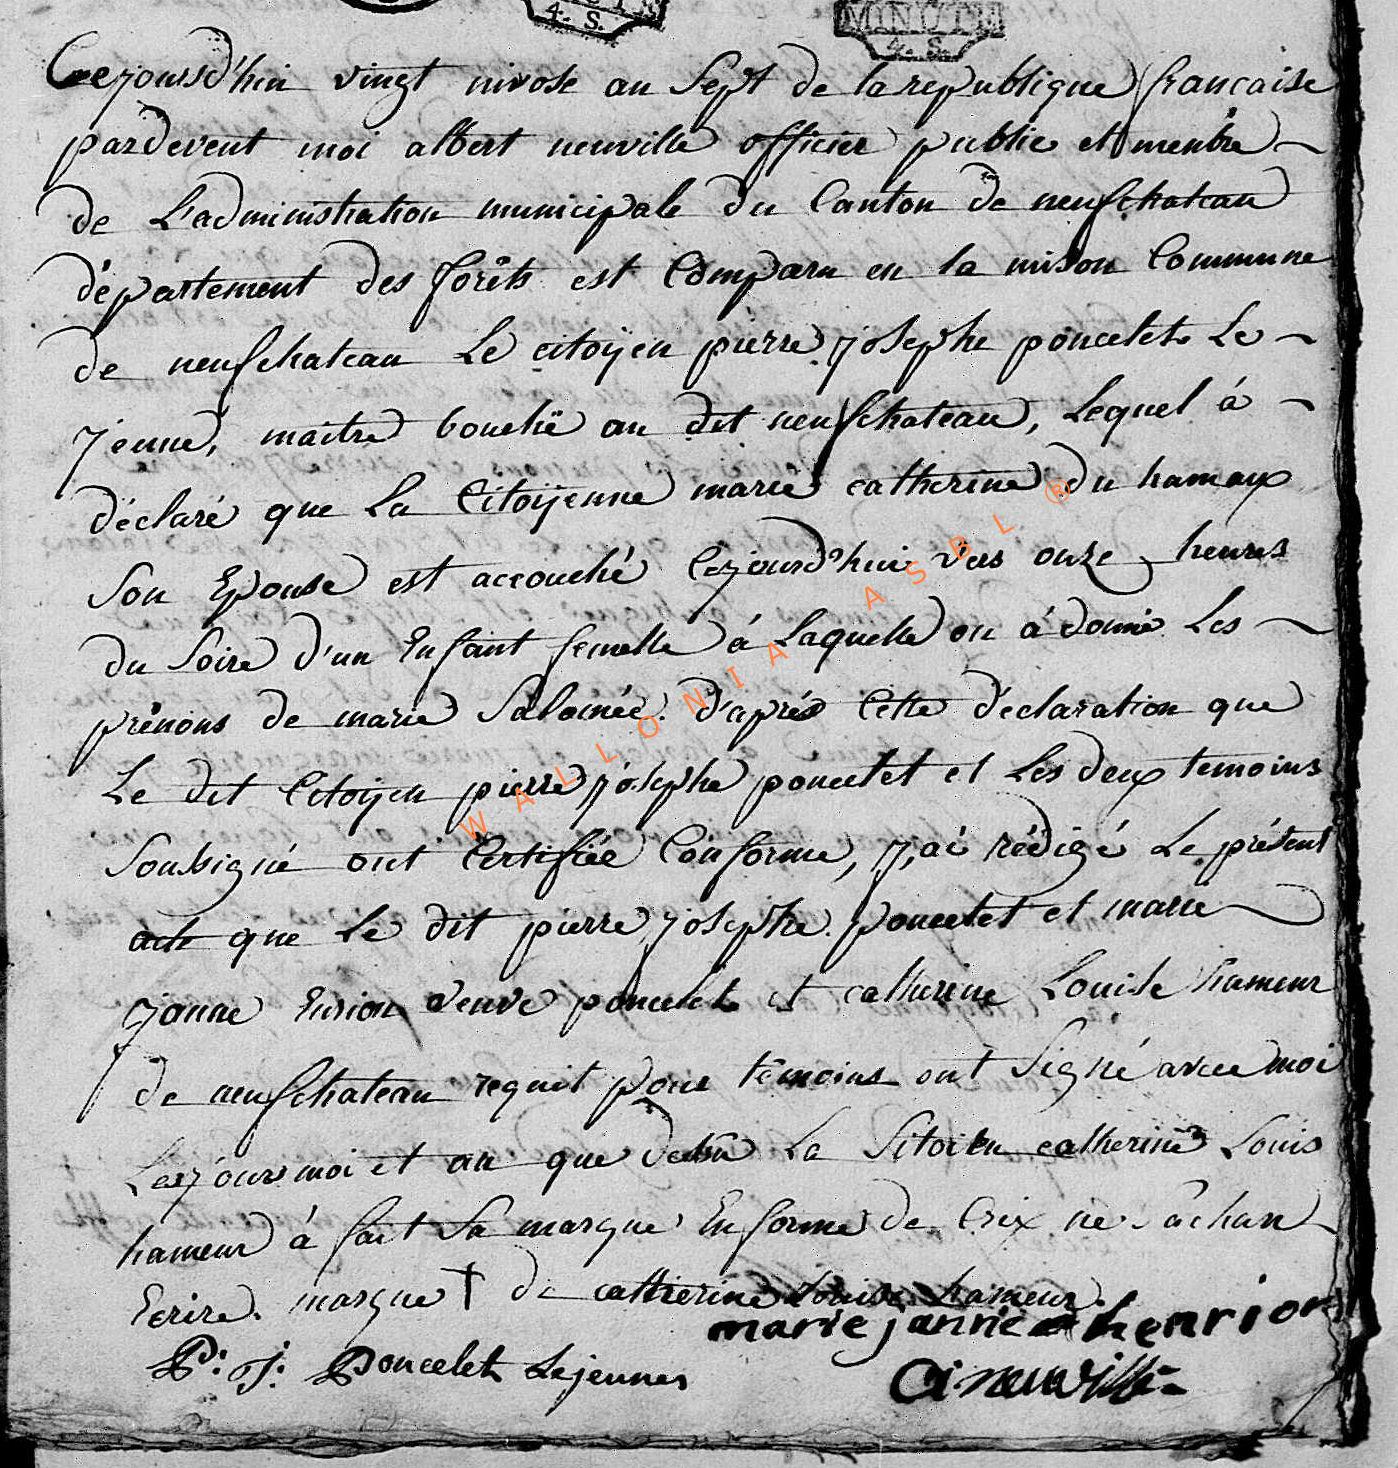 MINUTE
4. S.
4. S.
Cejourd'hui vingt nivose an Sept de la republique francaise
pardevent moi albert neuville officier public et menbre
de L'administration municipale du Canton de neufchateau
département des forêts est Comparu en la mison Commune
de neufchateau Le citoijen pierre josephe poncelet Le
jeune, maitre bouché au dit neufchateau, Lequel à
déclaré que La Citoijenne marie catherine du hameux
Son Epouse est accouché Cejourd'hui vers onze heures
du Soire d'un Enfant femelle à Laquelle on à donné Les
prénons de marie Salomée. d'aprés Cette déclaration que
Le dit Citoijen pierre josephe poncelet et Les deux temoins
Soubsigné ont Certifiée Conforme, j,ai rédigé Le présent
acte que Le dit pierre josephe poncelet et marie
janne henrion veuve poncelet et catherine Louise hameur
de neufchateau requit pour témoins ont Signé avec moi
Les jour moi et an que La Sitoien catherine Louis
hameur à fait Sa marque En forme de Crix ne Sachan
Ecrire. marque † de catherine Louise hameur.
marie janne henrion
P: J: Poncelet Lejeune
a: neuville
WALLONIA ASBL ®